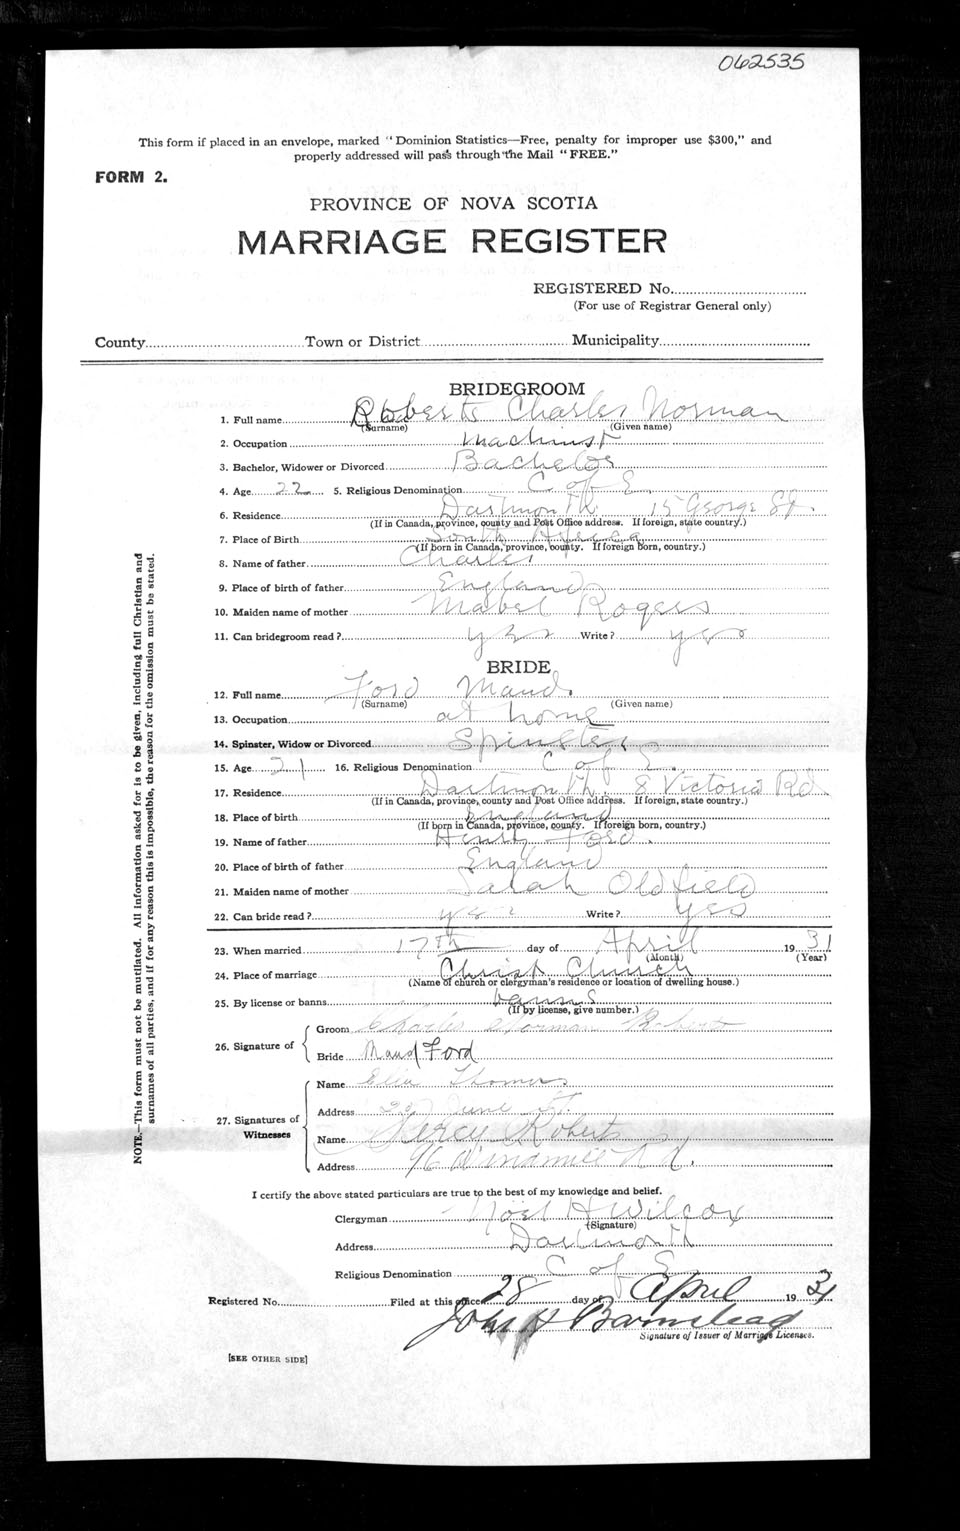 062535
This form if placed in an envelope, marked "Dominion Statistics—Free, penalty for improper use $300," and
properly addressed will pass through the Mail "FREE."
FORM 2.
PROVINCE OF NOVA SCOTIA
MARRIAGE REGISTER
REGISTERED No.
(For use of Registrar General only)
County Town or District Municipality
BRIDEGROOM
1. Full name Roberts Charles Norman
(Surname) (Given name)
2. Occupation Machinist
3. Bachelor, Widower or Divorced Bachelor
4. Age 22 5. Religious Denomination C of E.
6. Residence Dartmouth 15 George St.
(If in Canada, province, county and Post Office address. If foreign, state country.)
7. Place of Birth South Africa
(If born in Canada, province, county. If foreign born, country.)
8. Name of father Charles
9. Place of birth of father England
10. Maiden name of mother Mabel Rogers
11. Can bridegroom read? yes Write? yes
BRIDE
12. Full name Ford Maud.
(Surname) (Given name)
13. Occupation at home
14. Spinster, Widow or Divorced Spinster
15. Age 21 16. Religious Denomination C of E.
17. Residence Dartmouth. 8 Victoria Rd
(If in Canada, province, county and Post Office address. If foreign, state country.)
18. Place of birth England
(If born in Canada, province, county. If foreign born, country.)
19. Name of father Henry Ford.
20. Place of birth of father England
21. Maiden name of mother Sarah Oldfield
22. Can bride read? yes Write? yes
23. When married 17th day of April 1931
(Month) (Year)
24. Place of marriage Christ Church
(Name of church or clergyman's residence or location of dwelling house.)
25. By license or banns banns
(If by license, give number.)
26. Signature of
Groom Charles Norman Roberts
Bride Maud Ford
27. Signatures of Witnesses
Name Ellen Thomas
Address June St.
Name Percy Roberts
Address 96 Windmill Rd.
I certify the above stated particulars are true to the best of my knowledge and belief.
Clergyman Noel H Wilcox
(Signature)
Address Dartmouth
Religious Denomination C of E
Registered No. Filed at this office 28 day of April 1931
John H Barnstead
Signature of Issuer of Marriage Licenses.
[SEE OTHER SIDE]
NOTE.—This form must not be mutilated. All information asked for is to be given, including full Christian and
surnames of all parties, and if for any reason this is impossible, the reason for the omission must be stated.